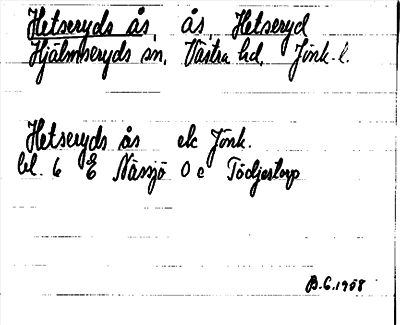 Hetseryds ås, ås, Hetseryd
Hjälmseryds sn, Västra hd, Jönk. l.
Hetseryds ås ek Jönk.
bl. 6 E Nässjö O e Tödjestorp
B.G. 1908